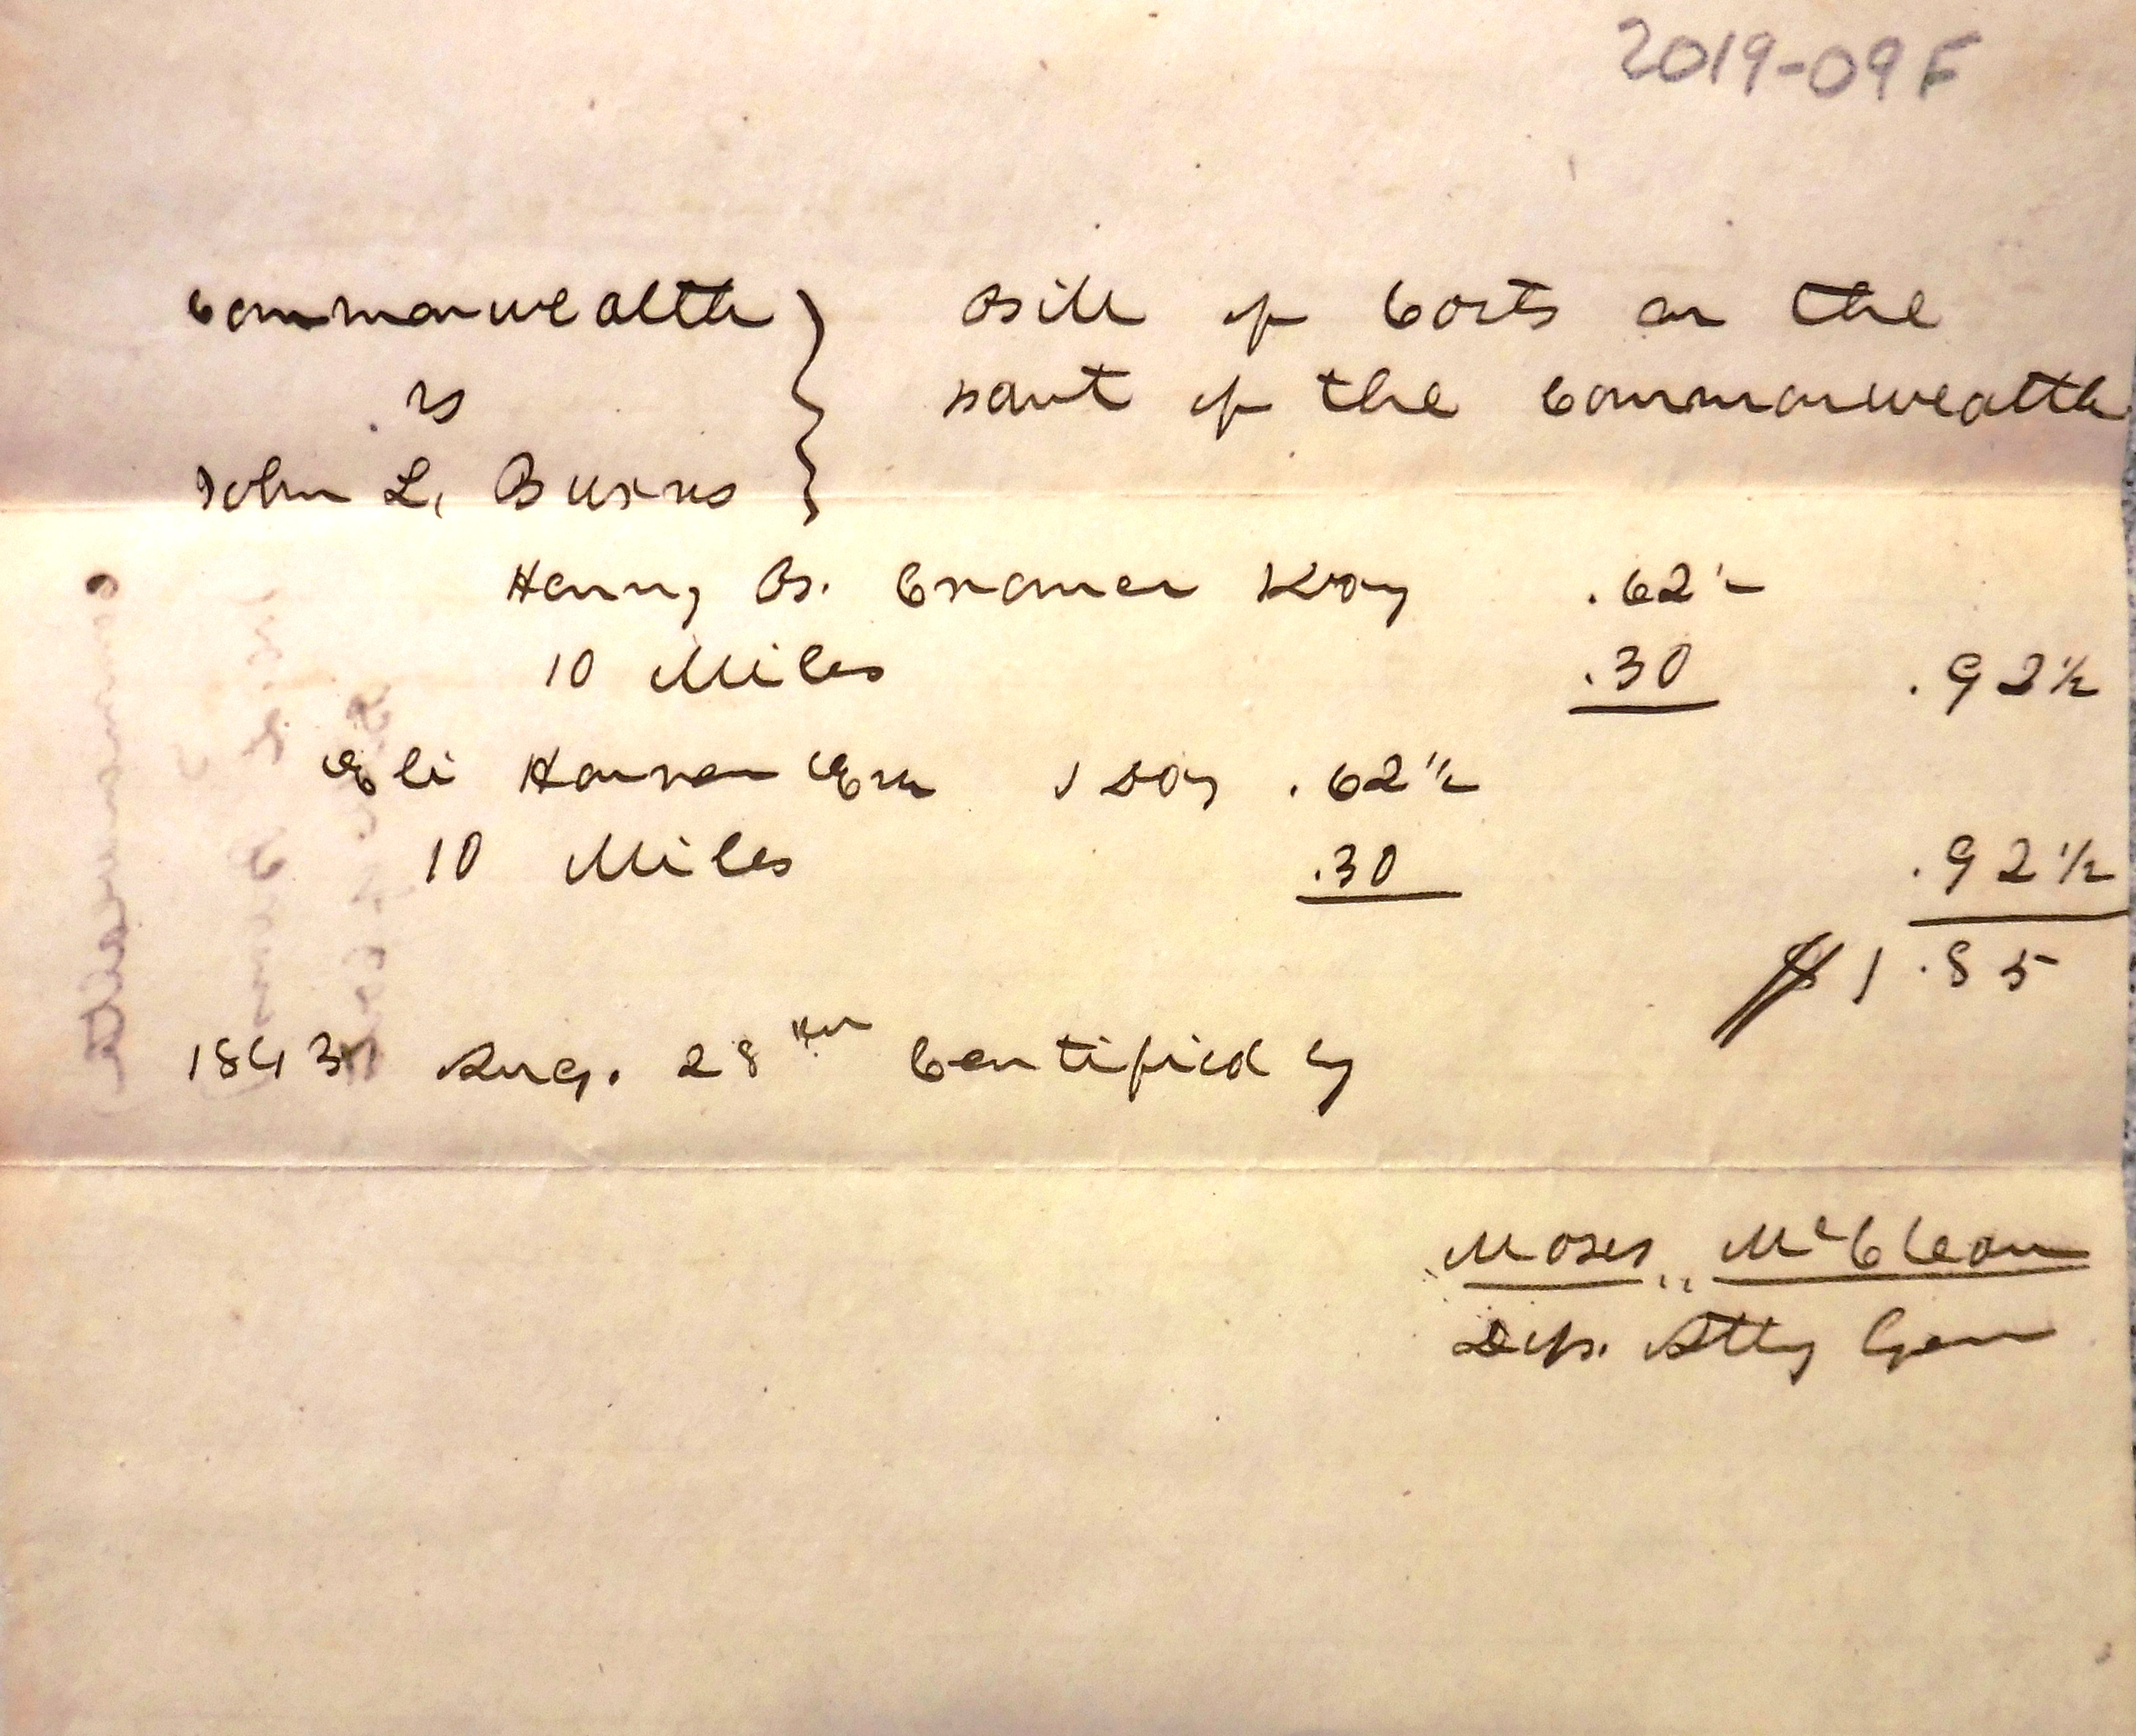 2019-09F
Commonwealth } Bill of Costs on the
vs part of the Commonwealth
John L. Burns
Henry B. Cramer 1 Day .62½
10 Miles .30 .92½
Eli Esq 1 Day .62½
10 Miles .30 .92½
$1.85
1843 Aug. 28th Certified by
Moses McClean
Dep. Atty Gen